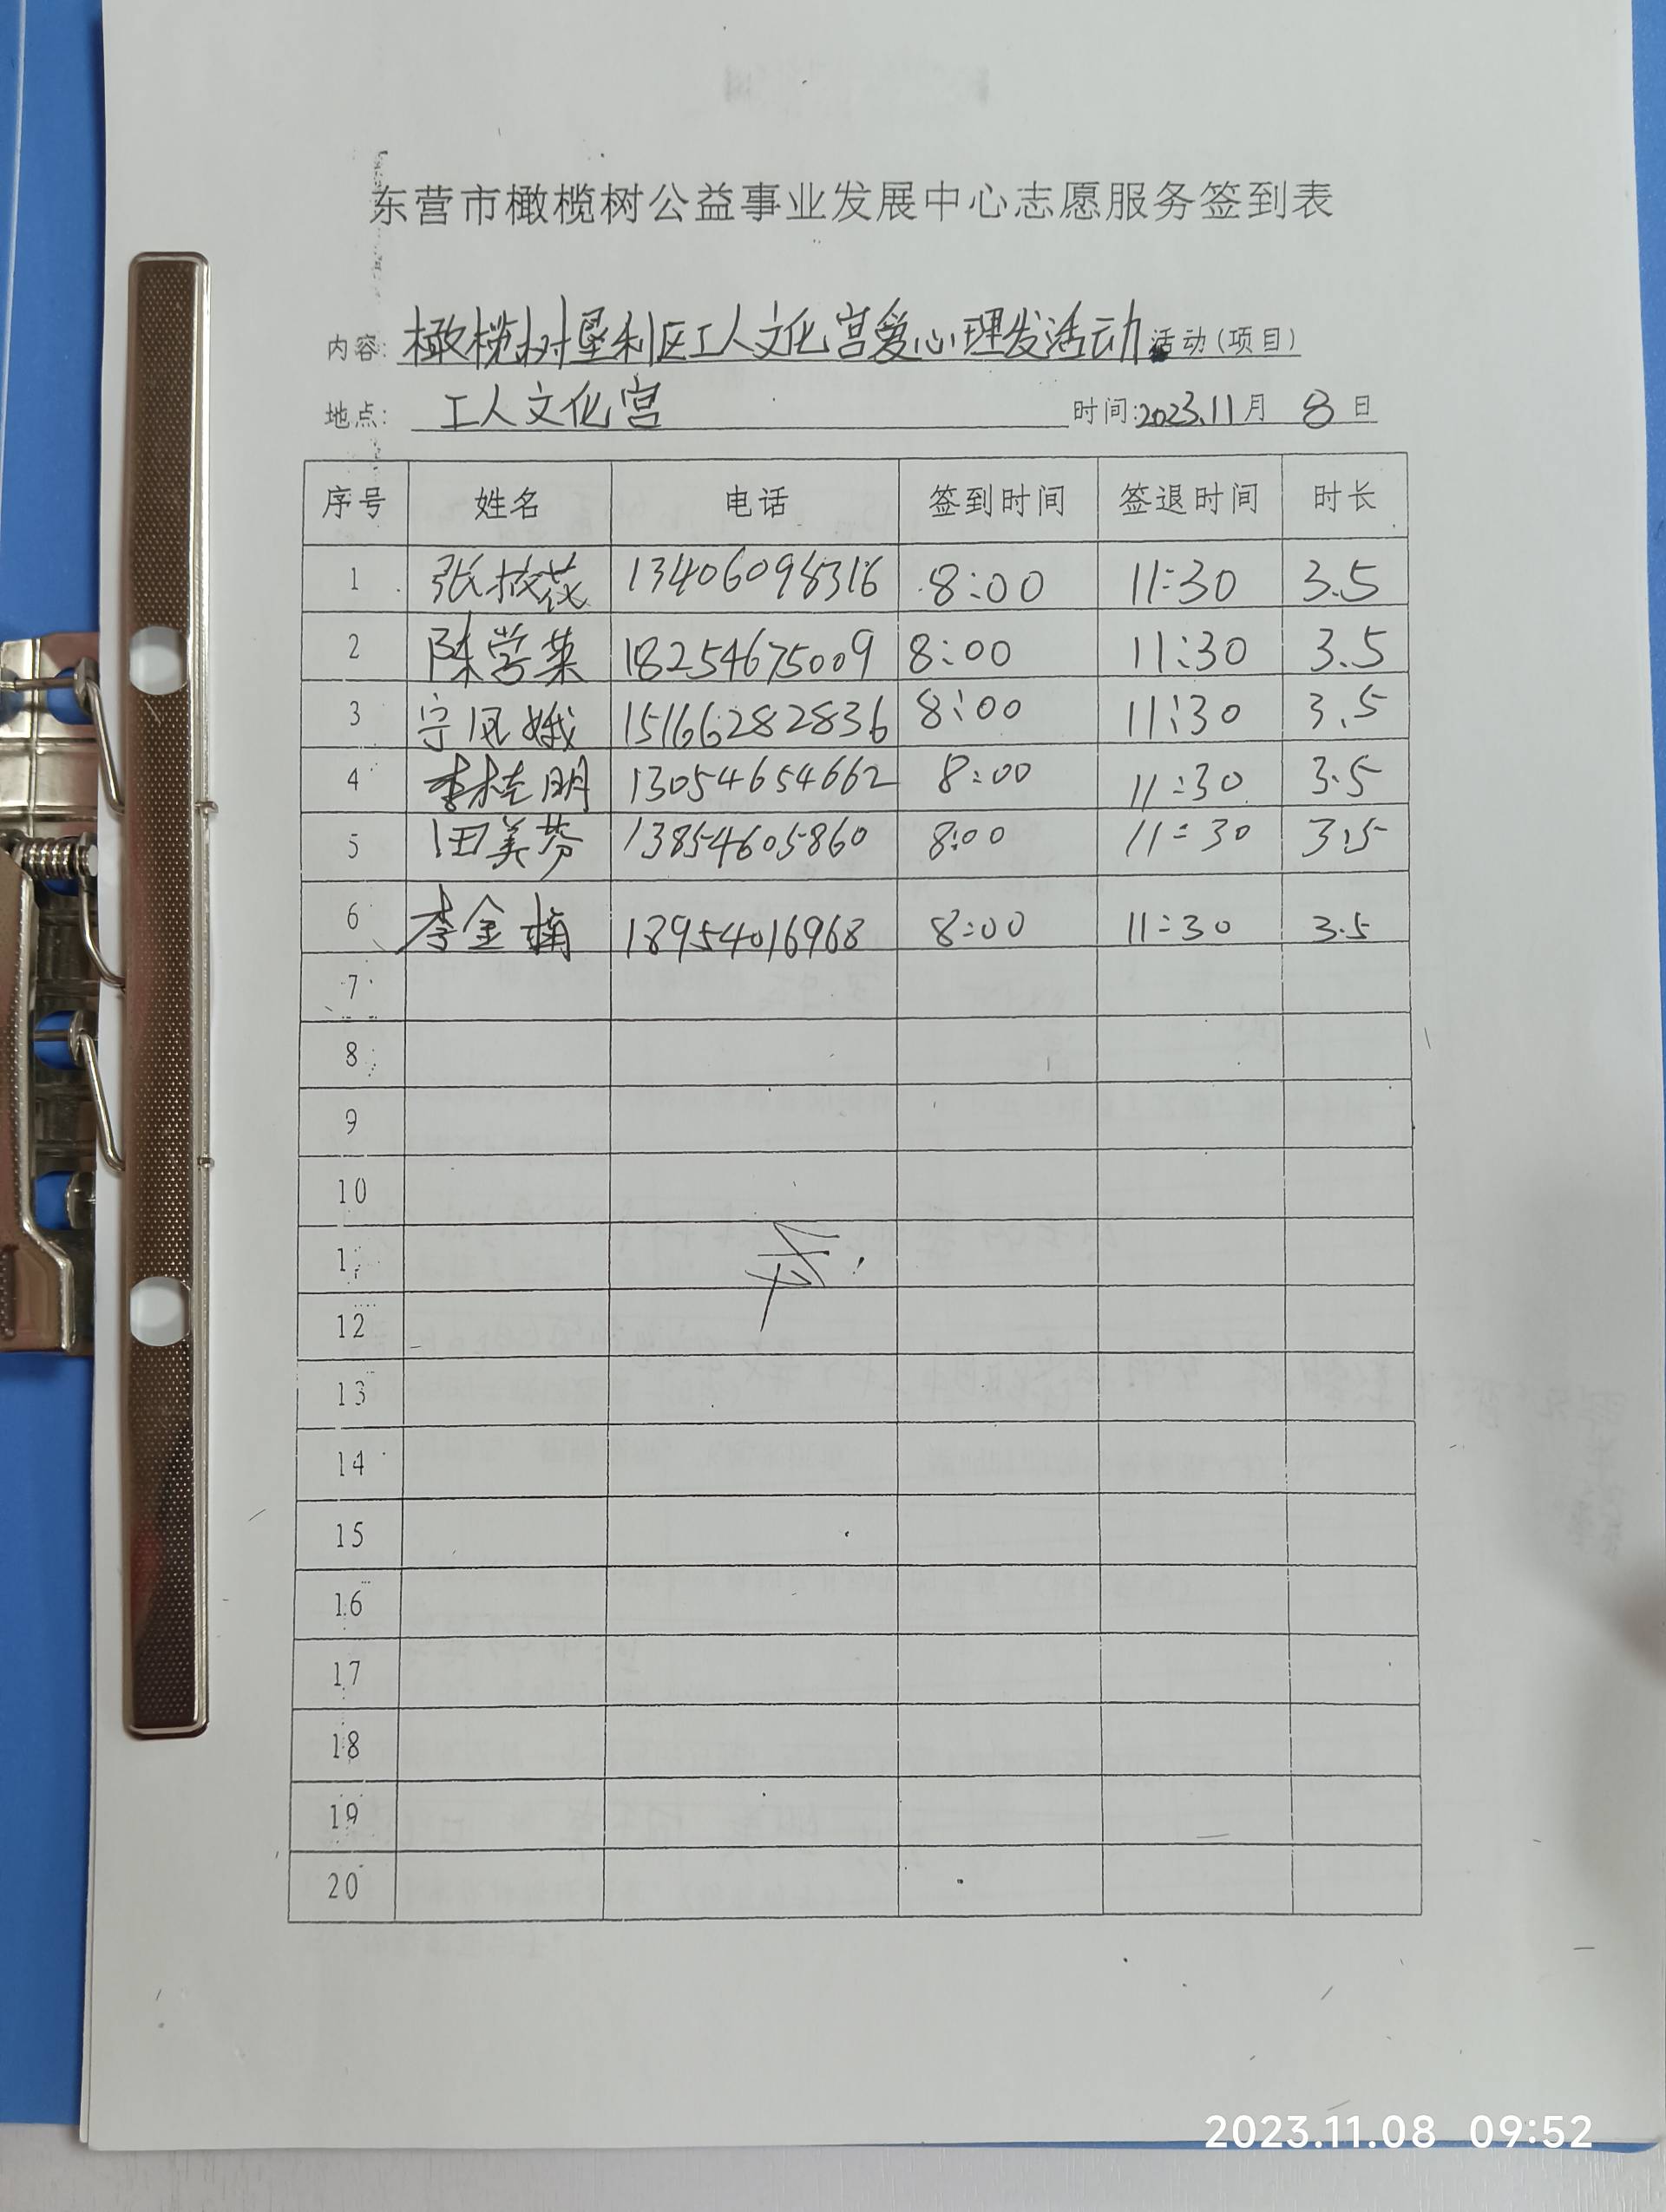 东营市橄榄树公益事业发展中心志愿服务签到表
内容: 橄榄树垦利区工人文化宫爱心理发活动 活动(项目)
地点: 工人文化宫 时间:2023.11月 8日
序号 姓名 电话 签到时间 签退时间 时长
1 张 13406098316 8:00 11:30 3.5
2 陈学英 18254675009 8:00 11:30 3.5
3 宁凤娥 15166282836 8:00 11:30 3.5
4 李桂明 13054654662 8:00 11:30 3.5
5 田美芬 13854605860 8:00 11:30 3.5
6 李金楠 18954016968 8:00 11:30 3.5
7
8
9
10
12
13
14
15
16
17
18
19
20
2023.11.08 09:52